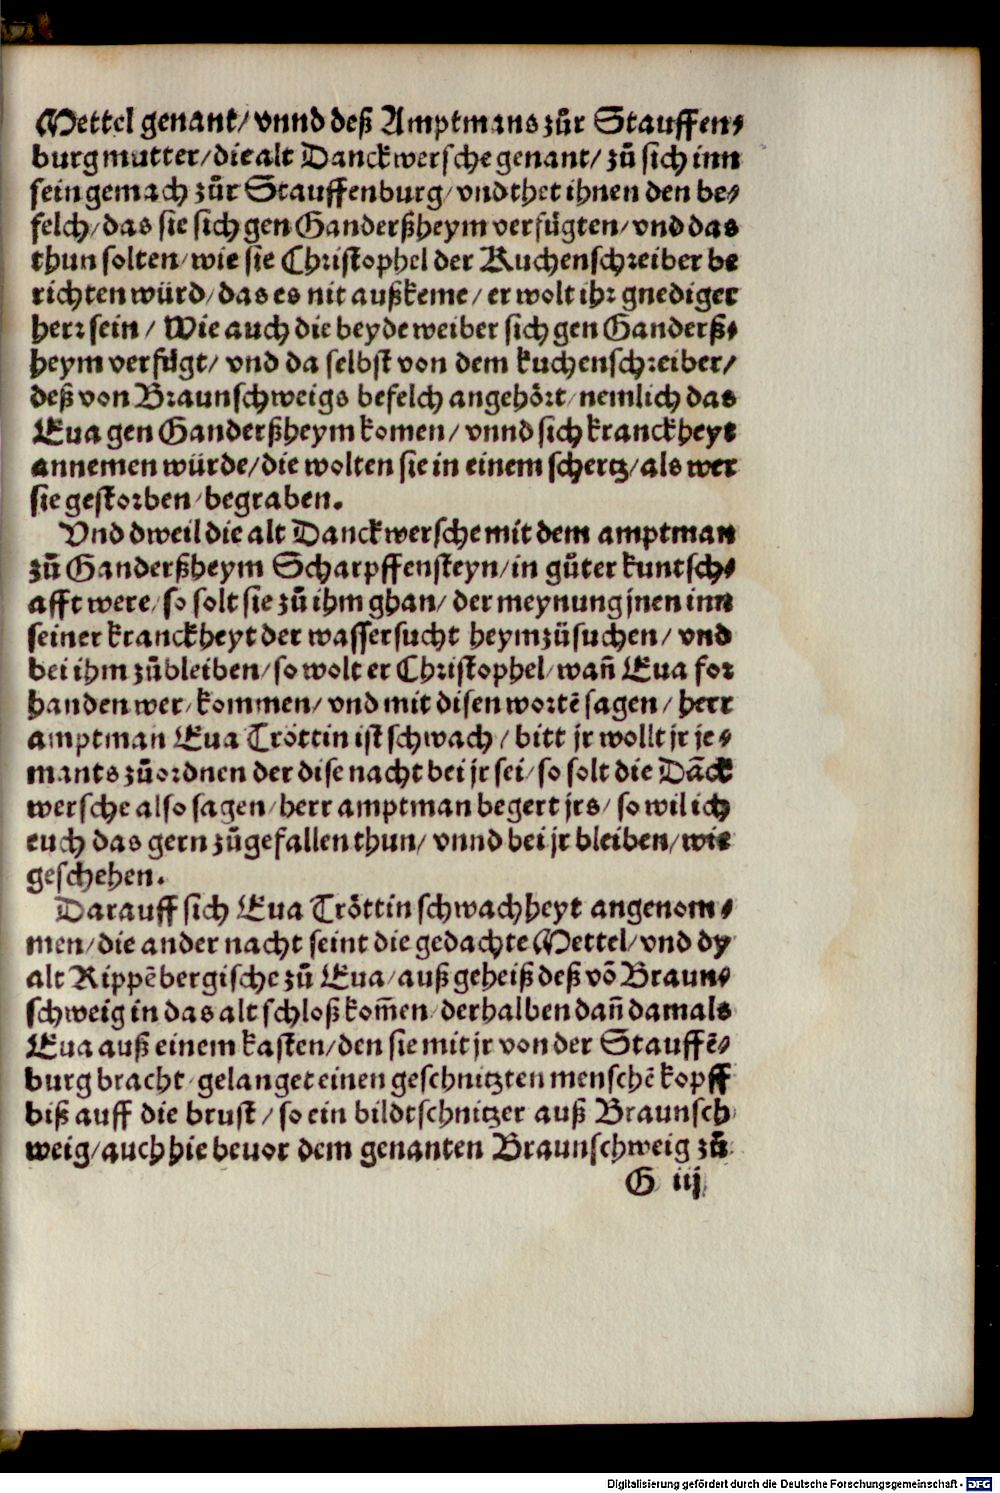 Mettel genant/ vnnd deß Amptmans zůr Stauffen⸗
burg mutter/ die alt Danckwersche genant/ zů sich inn
sein gemach zůr Stauffenburg/ vnd thet ihnen den be⸗
felch/ das sie sich gen Ganderßheym verfügten/ vnd das
thun solten/ wie sie Christophel der Kuchenschreiber be
richten würd/ das es nit außkeme/ er wolt ihr gnediger
herr sein/ Wie auch die beyde weiber sich gen Ganderß⸗
heym verfügt/ vnd da selbst von dem kuchenschreiber/
deß von Braunschweigs befelch angehört/ nemlich das
Eua gen Ganderßheym komen/ vnnd sich kranckheyt
annemen würde/ die wolten sie in einem schertz/ als wer
sie gestorben/ begraben.
Vnd dweil die alt Danckwersche mit dem amptman
zů Ganderßheym Scharpffensteyn/ in gůter kuntsch⸗
afft were/ so solt sie zů ihm ghan/ der meynung jnen inn
seiner kranckheyt der wassersucht heymzůsuchen/ vnd
bei ihm zůbleiben/ so wolt er Christophel/ wañ Eua for
handen wer/ kommen/ vnd mit disen wortē sagen/ herr
amptman Eua Tröttin ist schwach/ bitt jr wollt jr je⸗
mants zůordnen der dise nacht bei jr sei/ so solt die Dāck
wersche also sagen/ herr amptman begert jrs/ so wil ich
euch das gern zůgefallen thun/ vnnd bei jr bleiben/ wie
geschehen.
Darauff sich Eua Tröttin schwachheyt angenom⸗
men/ die ander nacht seint die gedachte Mettel/ vnd dy
alt Rippēbergische zů Eua/ auß geheiß deß võ Braun⸗
schweig in das alt schloß kom̃en/ derhalben dañ damals
Eua auß einem kasten/ den sie mit jr von der Stauffē⸗
burg bracht/ gelanget einen geschnitzten menschē kopff
biß auff die brust/ so ein bildtschnitzer auß Braunsch
weig/ auch hie beuor dem genanten Braunschweig zů
G iij
Digitalisierung gefördert durch die Deutsche Forschungsgemeinschaft - DFG